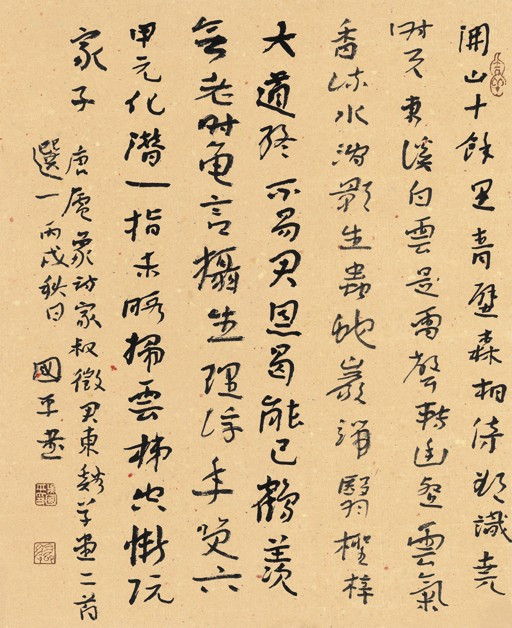 開山十餘里青壁森相倚欲識堯
時天東溪白雲是雷聲轉幽壑雲氣
杳流水澗影生蟲蛇巖端翳檉梓
大道終不易君恩曷能已鶴羨
無老時龜言攝生理浮年笑六
甲元化潛一指未暇掃雲梯空慚阮
家子
唐盧象詩家叔徵君東谿草堂二首
選一丙戌秋日國平書